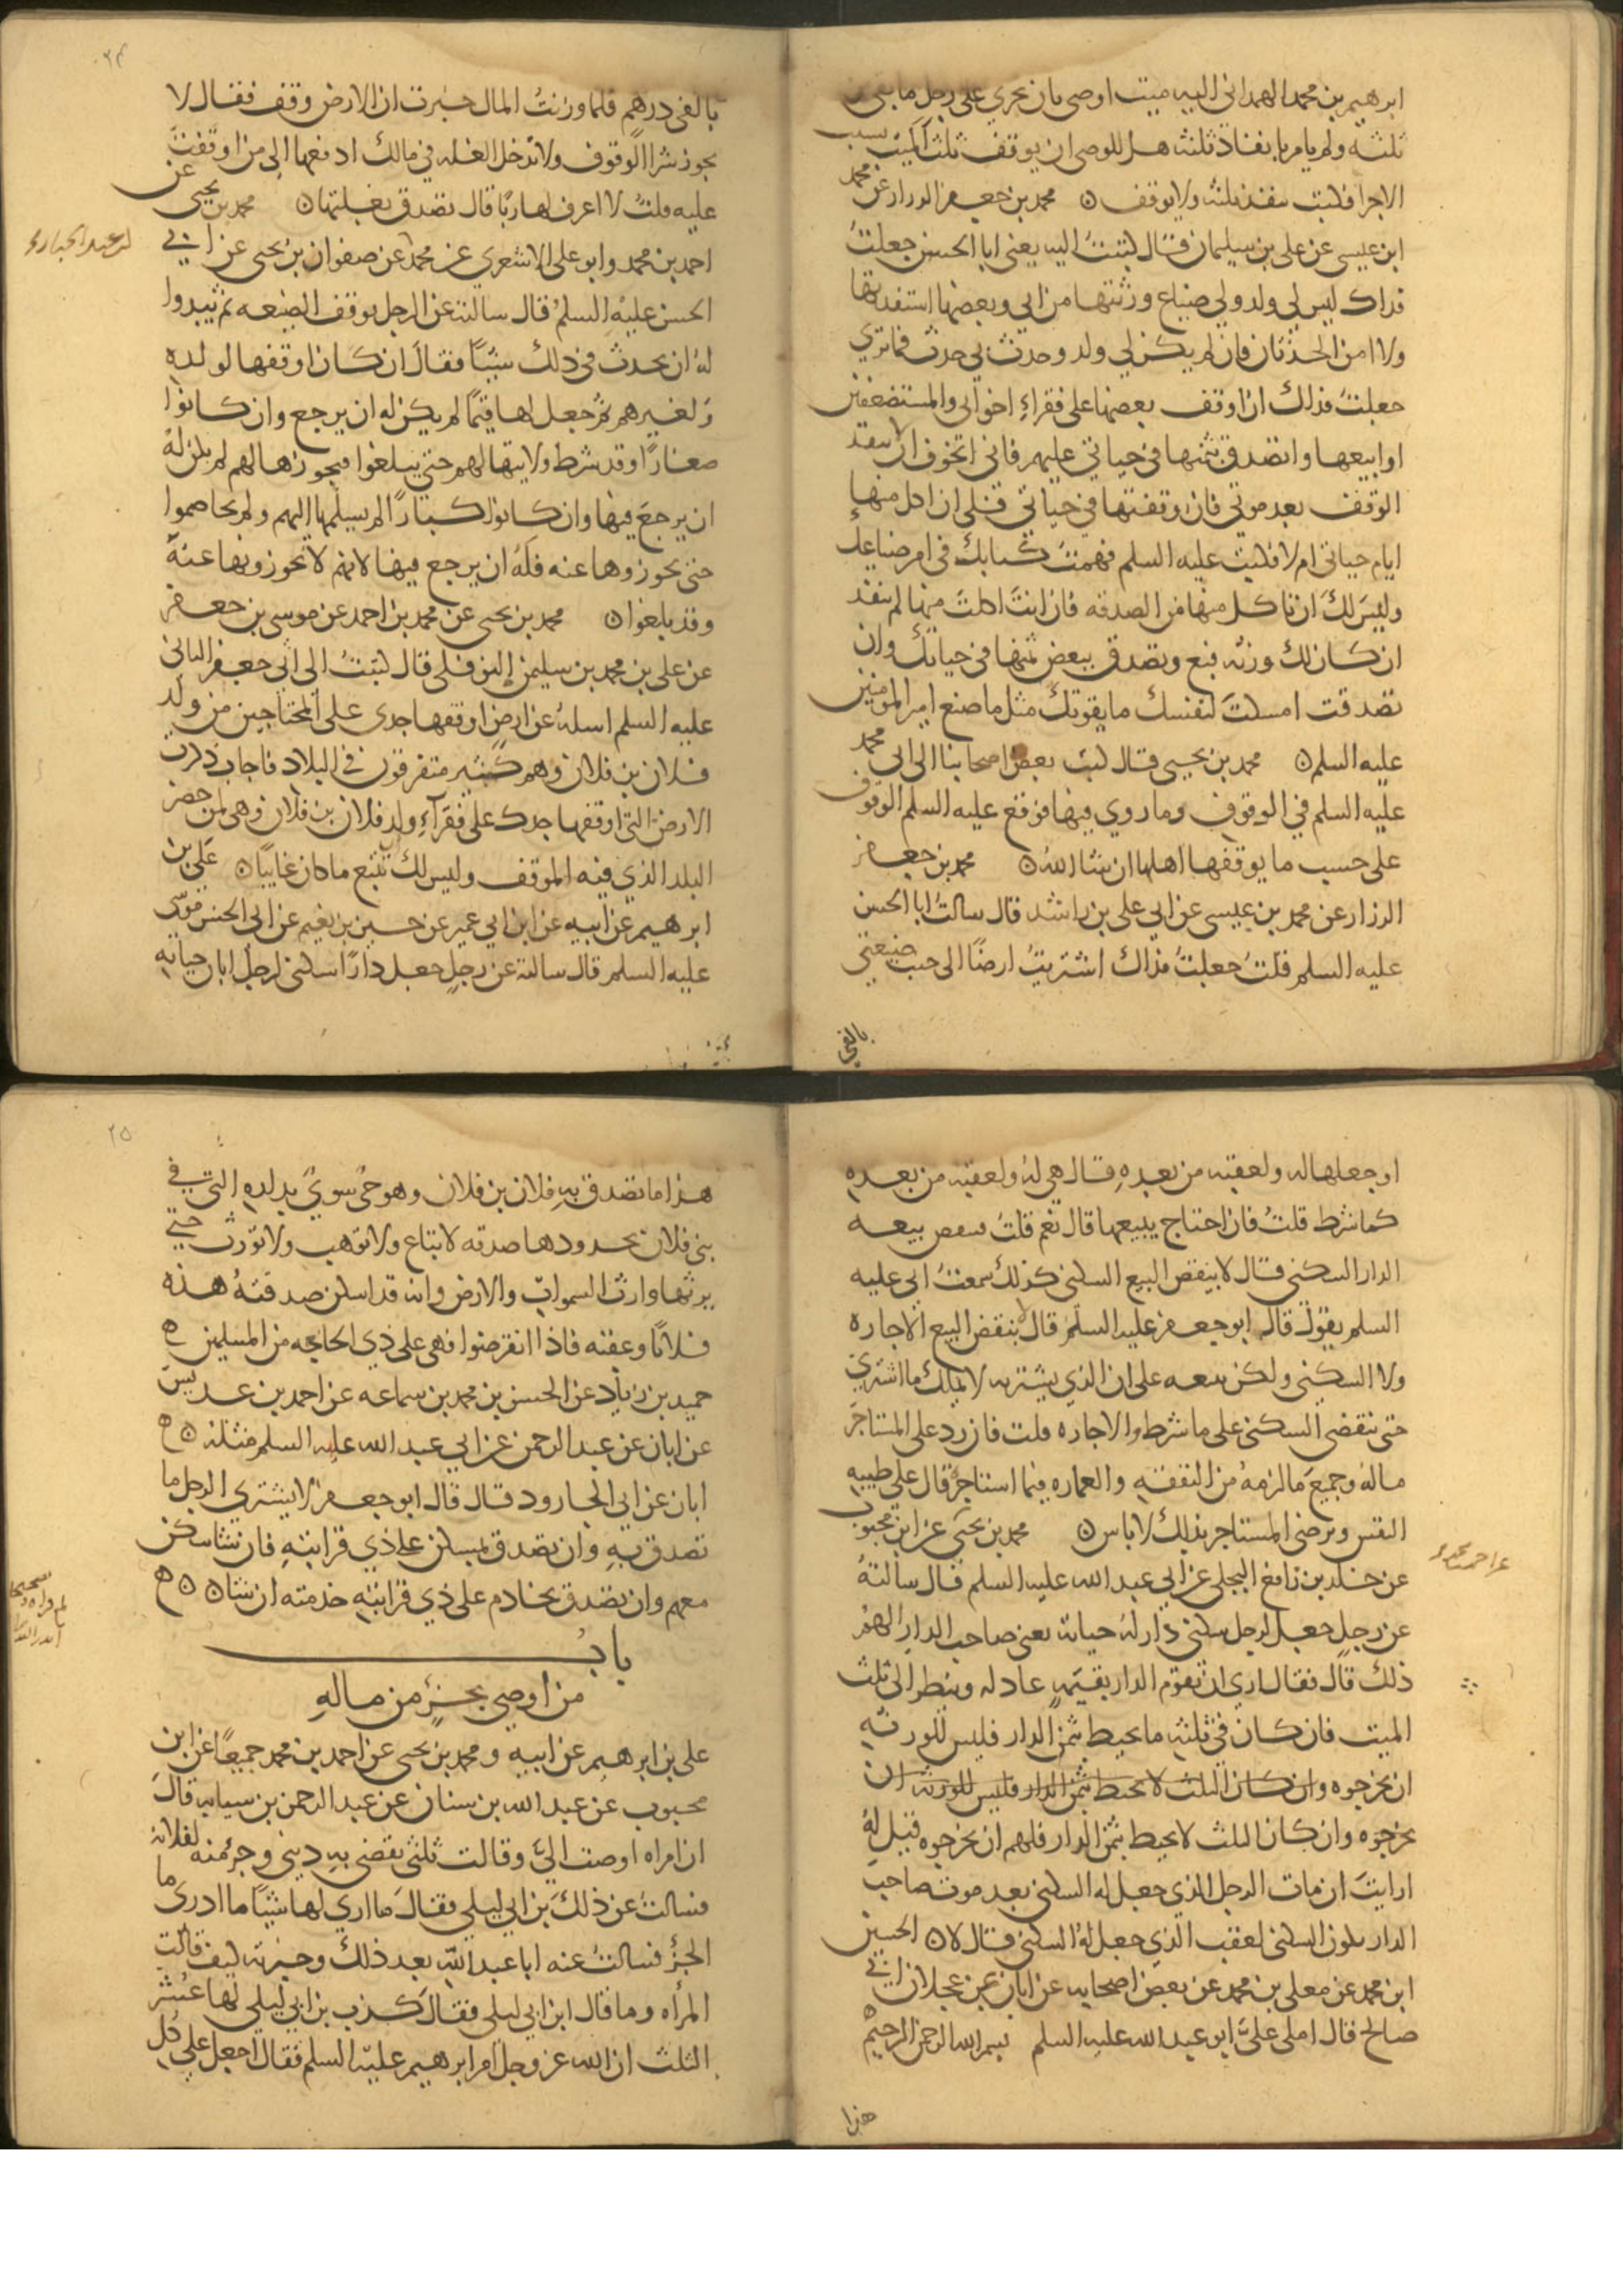 ابرهيم بن محمد الهمداني اليه ميت اوصى بان يجرى على رجل ما بقى من
ثلثه ولم يامر بانفاذ ثلثه هل للوصى ان يوقف ثلث الميت بسبب
الاجرا فكتب ينفذ ثلثه ولا يوقف ن محمد بن جعفر الرزاز عن محمد
ابن عيسى عن على بن سليمان قال كتبت اليه يعنى ابا الحسن جعلت
فداك ليس لي ولد ولي ضياع ورثتها من ابي وبعضها استفدتها
ولا امن الحدثان فان لم يكن لي ولد وحدث بي حدث فما ترى
جعلت فداك ان اوقف بعضها على فقراء اخواني والمستضعفين
او ابيعها واتصدق بثمنها في حياتي عليهم فاني اتخوف الا ينفذ
الوقف بعد موتي فان اوقفتها في حياتي فلي ان اكل منها
ايام حياتي ام لا فكتب عليه السلم فهمت كتابك في امر ضياعك
وليس لك ان تاكل منها من الصدقه فان انت اكلت منها لم ينفذ
ان كان لك ورثه فبع وتصدق ببعض ثمنها في حياتك وان
تصدقت امسكت لنفسك ما يقوتك مثل ما صنع امير المومنين
عليه السلم ن محمد بن يحيى قال كتب بعض اصحابنا الى ابي محمد
عليه السلم في الوقوف وما روي فيها فوقع عليه السلم الوقوف
على حسب ما يوقفها اهلها ان شا الله ن محمد بن جعفر
الرزاز عن محمد بن عيسى عن ابي علي بن راشد قال سالت ابا الحسن
عليه السلم قلت جعلت فداك اشتريت ارضًا الى جنب ضيعتي
بالفي
بالفى درهم فلما وزنت المال خبرت ان الارض وقف فقال لا
يجوز شرا الوقوف ولا تدخل الغله في مالك ادفعها الى من اوقفت
عليه قلت لا اعرف لها ربًا قال تصدق بغلتها ن محمد بن يحيى عن
احمد بن محمد وابو على الاشعري عن محمد عن صفوان بن يحيى عن ابي
الحسن عليه السلم قال سالته عن الرجل يوقف الضيعه ثم يبدوا
له ان يحدث في ذلك شيئًا فقال ان كان اوقفها لولده
ولغيرهم ثم جعل لها قيمًا لم يكن له ان يرجع وان كانوا
صغارًا وقد شرط ولايتها لهم حتى يبلغوا فيحوزها لهم لم يكن له
ان يرجع فيها وان كانوا كبارًا لم يسلمها اليهم ولم يخاصموا
حتى يحوزوها عنه فله ان يرجع فيها لانهم لا يحوزونها عنه
وقد بلغوا ن محمد بن يحيى عن محمد بن احمد عن موسى بن جعفر
عن على بن محمد بن سليمن النوفلى قال كتبت الى ابي جعفر الثاني
عليه السلم اسله عن ارض اوقفها جدى على المحتاجين من ولد
فلان بن فلان وهم كثير متفرقون في البلاد فاجاب ذكرت
الارض التي اوقفها جدك على فقراء ولد فلان بن فلان وهى لمن حضر
البلد الذي فيه الموقف وليس لك ان تتبع ما كان غايبًا ن على بن
ابرهيم عن ابيه عن ابن ابي عمير عن حسين بن نعيم عن ابي الحسن موسى
عليه السلم قال سالته عن رجل جعل دارًا سكنى لرجل ابان حياته
او جعلها له ولعقبه من بعده قال هي له ولعقبه من بعده
كما شرط قلت فان احتاج يبيعها قال نعم قلت ينقض بيعه
الدار السكنى قال لا ينقض البيع السكنى كذلك سمعت ابي عليه
السلم يقول قال ابو جعفر عليه السلم قال لا ينقض البيع الاجاره
ولا السكنى ولكن يبيعه على ان الذي يشتريه لا يملك ما اشترى
حتى تنقضي السكنى على ما شرط والاجاره قلت فان رد على المستاجر
ماله وجميع ما لزمه من النفقه والعماره فيما استاجر قال على طيبه
النفس ويرضى المستاجر بذلك لا باس ن محمد بن يحيى عن ابن محبوب
عن خلد بن نافع البجلي عن ابي عبد الله عليه السلم قال سالته
عن رجل جعل لرجل سكنى دار له حياته يعني صاحب الدار الهم
ذلك قال فقال ارى ان تقوم الدار بقيمه عادله وينظر الى ثلث
الميت فان كان في ثلثه ما يحيط بثمن الدار فليس للورثه
ان يخرجوه وان كان الثلث لا يحيط بثمن الدار فليس للورثه ان
يخرجوه وان كان الثلث لا يحيط بثمن الدار فلهم ان يخرجوه قيل له
ارايت ان مات الرجل الذي جعل له السكنى بعد موت صاحب
الدار يكون السكنى لعقب الذي جعل له السكنى قال لا ن الحسين
ابن محمد عن معلى بن محمد عن بعض اصحابه عن ابان عن عجلان ابي
صالح قال املى علىّ ابو عبد الله عليه السلم بسم الله الرحمن الرحيم
هذا
٢٥
هذا ما تصدق به فلان بن فلان وهو حى سوي بداره التي في
بنى فلان بحدودها صدقه لا تباع ولا توهب ولا تورث حتى
يرثها وارث السموات والارض وانه قد اسكن صدقته هذه
فلانًا وعقبه فاذا انقرضوا فهى على ذي الحاجه من المسلمين ه
حميد بن زياد عن الحسن بن محمد بن سماعه عن احمد بن عديس
عن ابان عن عبد الرحمن عن ابي عبد الله عليه السلم مثله ن ه
ابان عن ابي الجارود قال قال ابو جعفر لا يشتري الرجل ما
تصدق به وان تصدق بمسكن على ذي قرابته فان شا سكن
معهم وان تصدق بخادم على ذي قرابته خدمته ان شا ن ن ه
باب
من اوصى بجزء من ماله
على بن ابرهيم عن ابيه ومحمد بن يحيى عن احمد بن محمد جميعًا عن ابن
محبوب عن عبد الله بن سنان عن عبد الرحمن بن سيابه قال
ان امراه اوصت الىّ وقالت ثلثى يقضى به ديني وجزء منه لفلانه
فسالت عن ذلك بن ابي ليلى فقال ما ارى لها شيئًا ما ادرى ما
الجزء فسالت عنه ابا عبد الله بعد ذلك وخبرته كيف قالت
المرأه وما قال ابن ابي ليلى فقال كذب بن ابي ليلى لها عشر
الثلث ان الله عز وجل امر ابرهيم عليه السلم فقال اجعل على كل